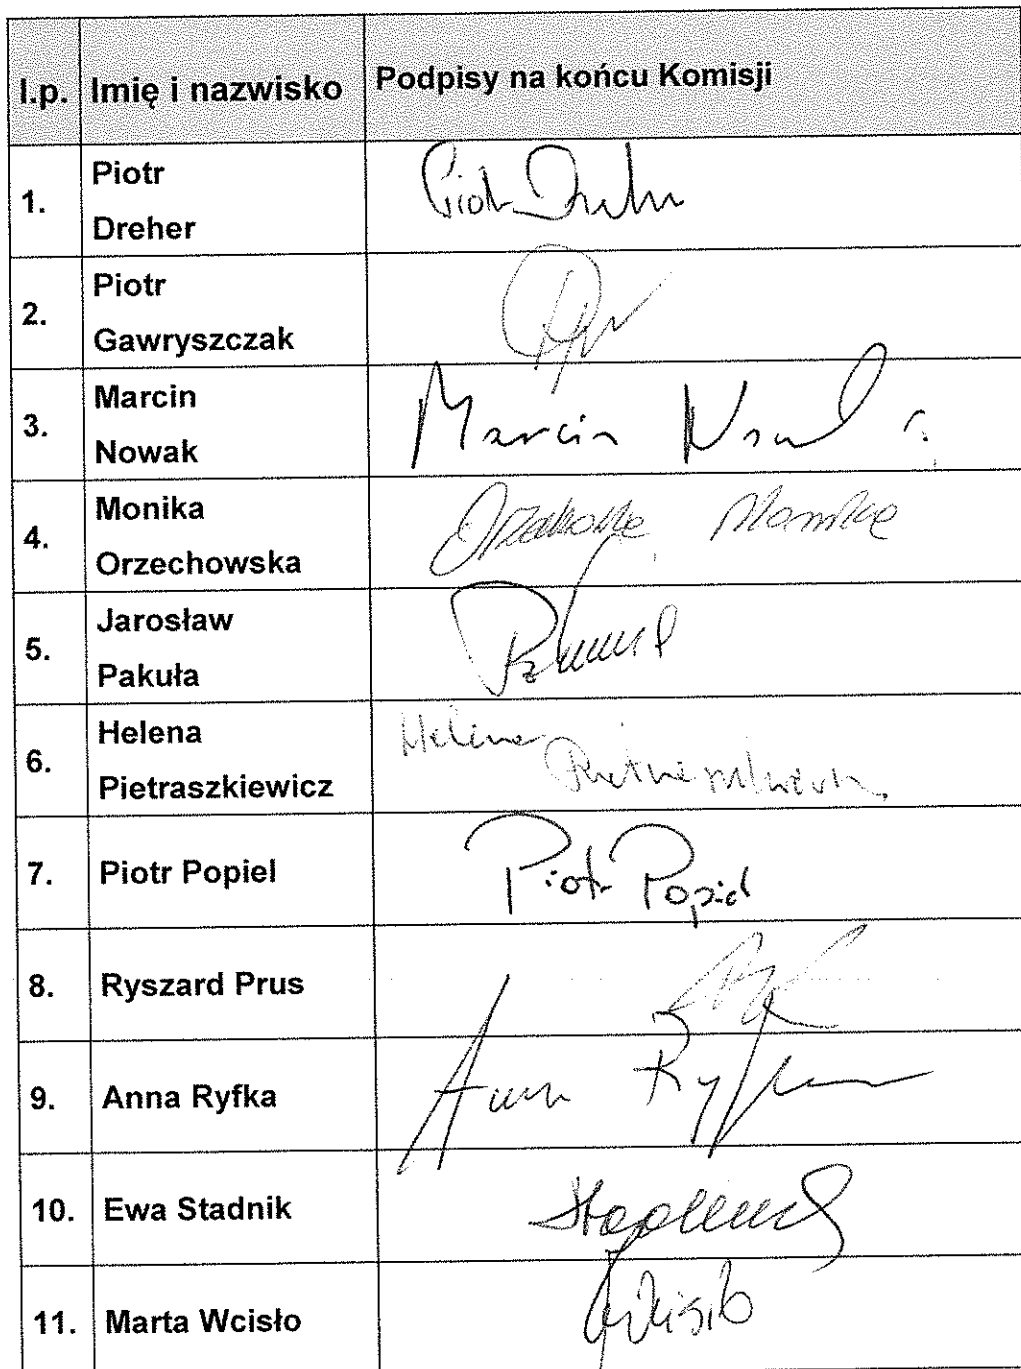 l.p. Imię i nazwisko Podpisy na końcu Komisji
1. Piotr
Dreher
Piotr Dreher
2. Piotr
Gawryszczak
3. Marcin
Nowak
Marcin Nowak
4. Monika
Orzechowska
Monika
5. Jarosław
Pakuła
6. Helena
Pietraszkiewicz
Helena
Pietraszkiewicz
7. Piotr Popiel Piotr Popiel
8. Ryszard Prus
9. Anna Ryfka Anna Ryfka
10. Ewa Stadnik
11. Marta Wcisło Wcisło